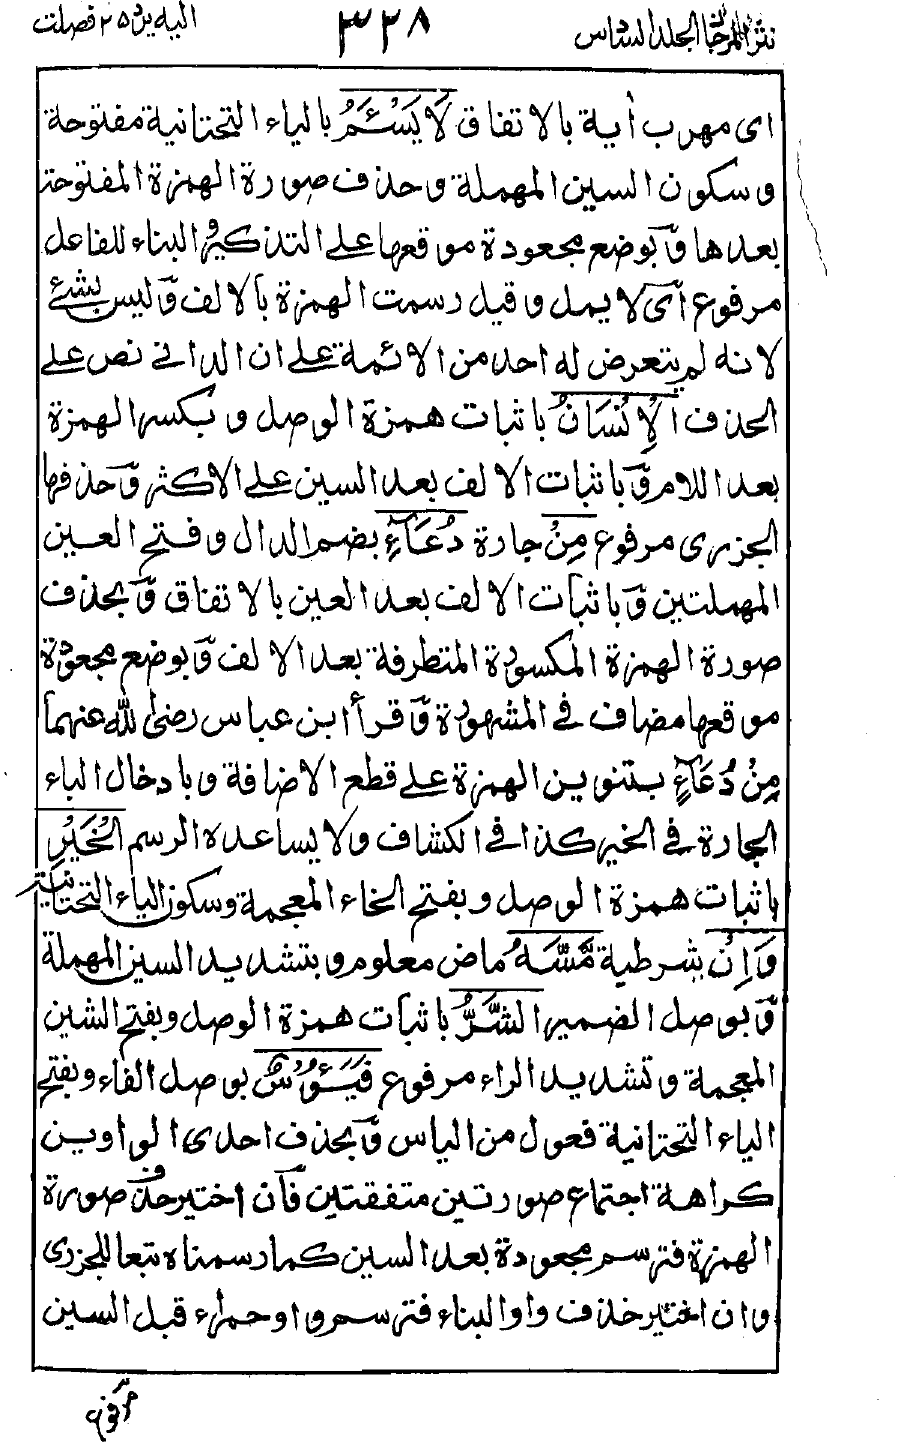 نثر المرجان الجلد السادس ٣٢٨ اليه يرد ٢٥ فصلت
اى مهرب أية بالاتفاق لَا يَسْئَمُ بالياء التحتانية مفتوحة
وسكون السين المهملة وحذف صورة الهمزة المفتوحة
بعدها وبوضع مجعودة موقعها على التذكير والبناء للفاعل
مرفوع اى لا يمل وقيل رسمت الهمزة بالالف وليس بشئ
لانه لم يتعرض له احد من الائمة على ان الدانى نص على
الحذف الْاِنْسَانُ باثبات همزة الوصل وبكسر الهمزة
بعد اللام وباثبات الالف بعد السين على الاكثر وحذفها
الجزرى مرفوع مِنْ جارة دُعَآءِ بضم الدال وفتح العين
المهملتين وباثبات الالف بعد العين بالاتفاق وبحذف
صورة الهمزة المكسورة المتطرفة بعد الالف وبوضع مجعودة
موقعها مضاف فى المشهورة وقرأ ابن عباس رضى الله عنهما
مِنْ دُعَآءٍ بتنوين الهمزة على قطع الاضافة وبادخال الباء
الجارة فى الخير كذا فى الكشاف ولا يساعده الرسم الْخَيْرِ
باثبات همزة الوصل وبفتح الخاء المعجمة وسكون الياء التحتانية
وَاِنْ شرطية مَّسَّهُ ماض معلوم وبتشديد السين المهملة
وبوصل الضمير الشَّرُّ باثبات همزة الوصل وبفتح الشين
المعجمة وتشديد الراء مرفوع فَيَئُوْسٌ بوصل الفاء وبفتح
الياء التحتانية فعول من الياس وبحذف احدى الواوين
كراهة اجتماع صورتين متفقتين فان اختير حذف صورة
الهمزة فترسم مجعودة بعد السين كما رسمناه تبعا للجزرى
وان اختير حذف واو البناء فترسم واو حمراء قبل السين